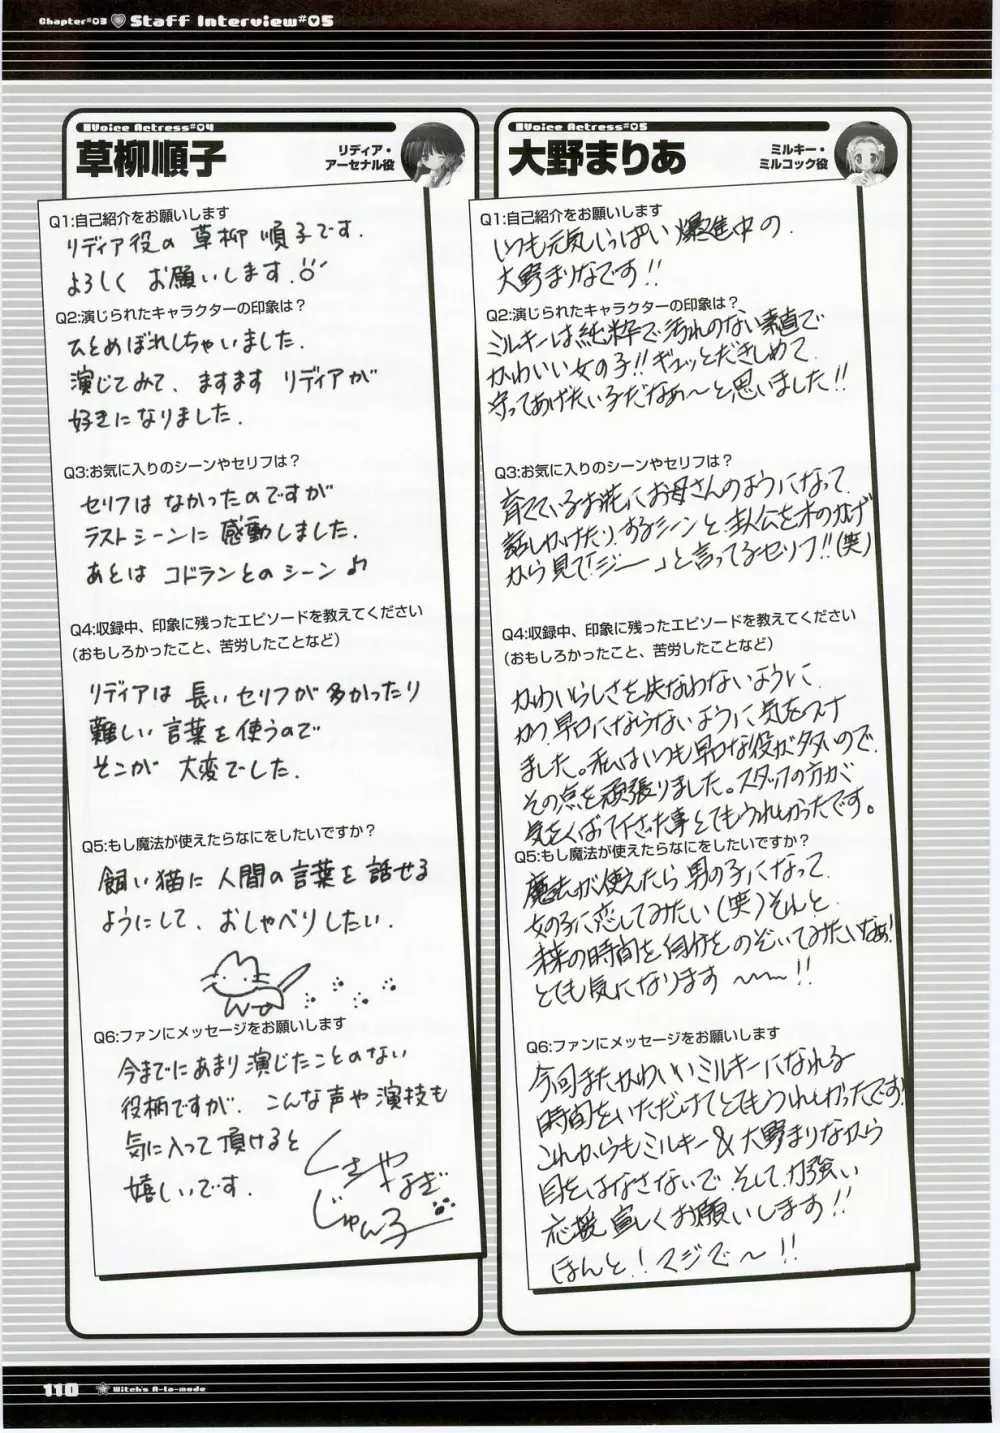 Chapter#03 Staff Interview#05
Voice Actress#04
草柳順子
リディア・
アーセナル役
Q1:自己紹介をお願いします
リディア役の草柳順子です.
よろしくお願いします.
Q2:演じられたキャラクターの印象は?
ひとめぼれしちゃいました.
演じてみて、ますますリディアが
好きになりました.
Q3:お気に入りのシーンやセリフは?
セリフはなかったのですが
ラストシーンに感動しました.
あとはコドランとのシーン♪
Q4:収録中、印象に残ったエピソードを教えてください
(おもしろかったこと、苦労したことなど)
リディアは長いセリフが多かったり
難しい言葉を使うので
そこが大変でした.
Q5:もし魔法が使えたらなにをしたいですか?
飼い猫に人間の言葉を話せる
ようにして、おしゃべりしたい.
Q6:ファンにメッセージをお願いします
今までにあまり演じたことのない
役柄ですが、こんな声や演技も
気に入って頂けると
嬉しいです.
くさやなぎ
じゅん子
Voice Actress#05
大野まりあ
ミルキー・
ミルコック役
Q1:自己紹介をお願いします
いつも元気いっぱい爆進中の
大野まりなです!!
Q2:演じられたキャラクターの印象は?
ミルキーは純粋で汚れのない素直で
かわいい女の子!!ギュッとだきしめて
守ってあげたい子だなぁ〜と思いました!!
Q3:お気に入りのシーンやセリフは?
育てているお花にお母さんのようになって
話しかけたりするシーンと、主人公を木のかげ
から見て「ジー」と言ってるセリフ!!(笑)
Q4:収録中、印象に残ったエピソードを教えてください
(おもしろかったこと、苦労したことなど)
かわいらしさを失なわないように
かつ早口にならないように気をつけ
ました。私はいつも早口な役が多いので、
その点を頑張りました。スタッフの方が
気をくばって下さった事とてもうれしかったです。
Q5:もし魔法が使えたらなにをしたいですか?
魔法が使えたら男の子になって
女の子に恋してみたい(笑)そんと
未来の時間を自分をのぞいてみたいなぁ!
とても気になります〜〜!!
Q6:ファンにメッセージをお願いします
今回またかわいいミルキーになれる
時間をいただけてとてもうれしかったです!
これからもミルキー&大野まりなから
目をはなさないで そして力強い
応援宜しくお願いします!!
ほんと!マジで〜!!
110 Witch's A-la-mode